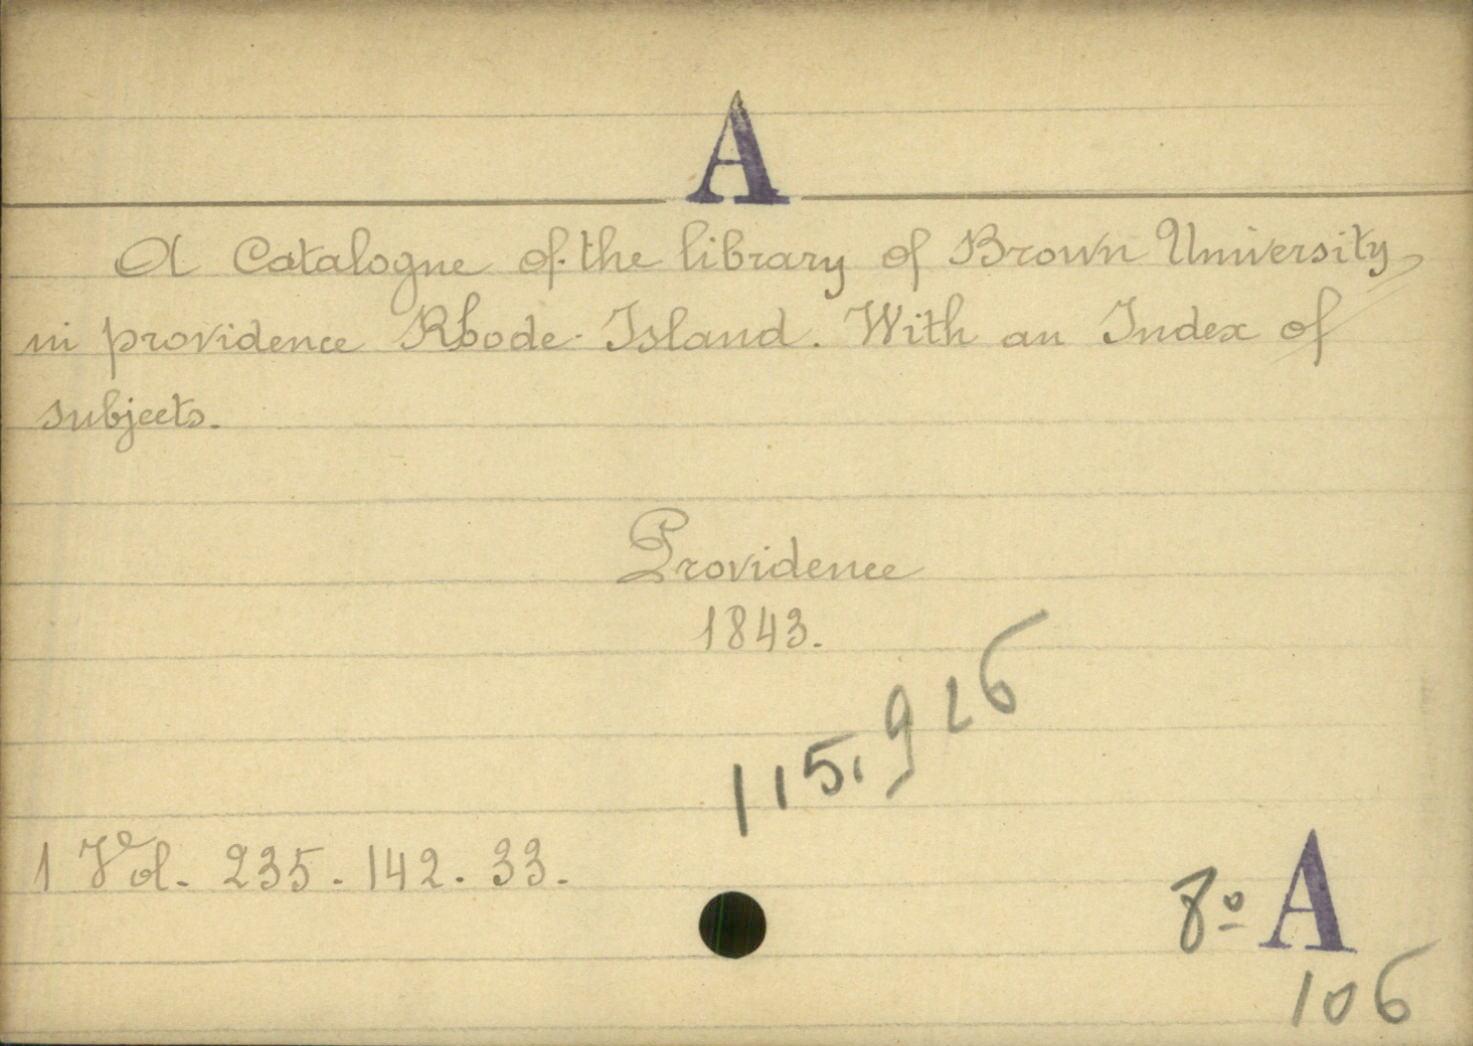 A
A Catalogue of the library of Brown University,
in providence Rhode-Island. With an Index of
subjects.
Providence
1843.
115,926
1 Vol. 235. 142. 33.
8º A
106